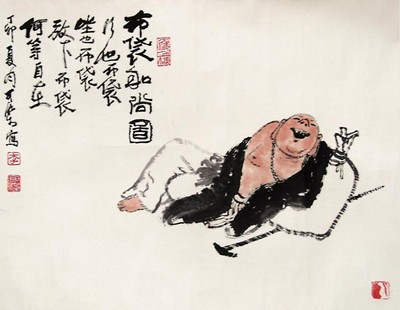 布袋和尚图
行也布袋
坐也布袋
放下布袋
何等自在
丁卯夏月可染写